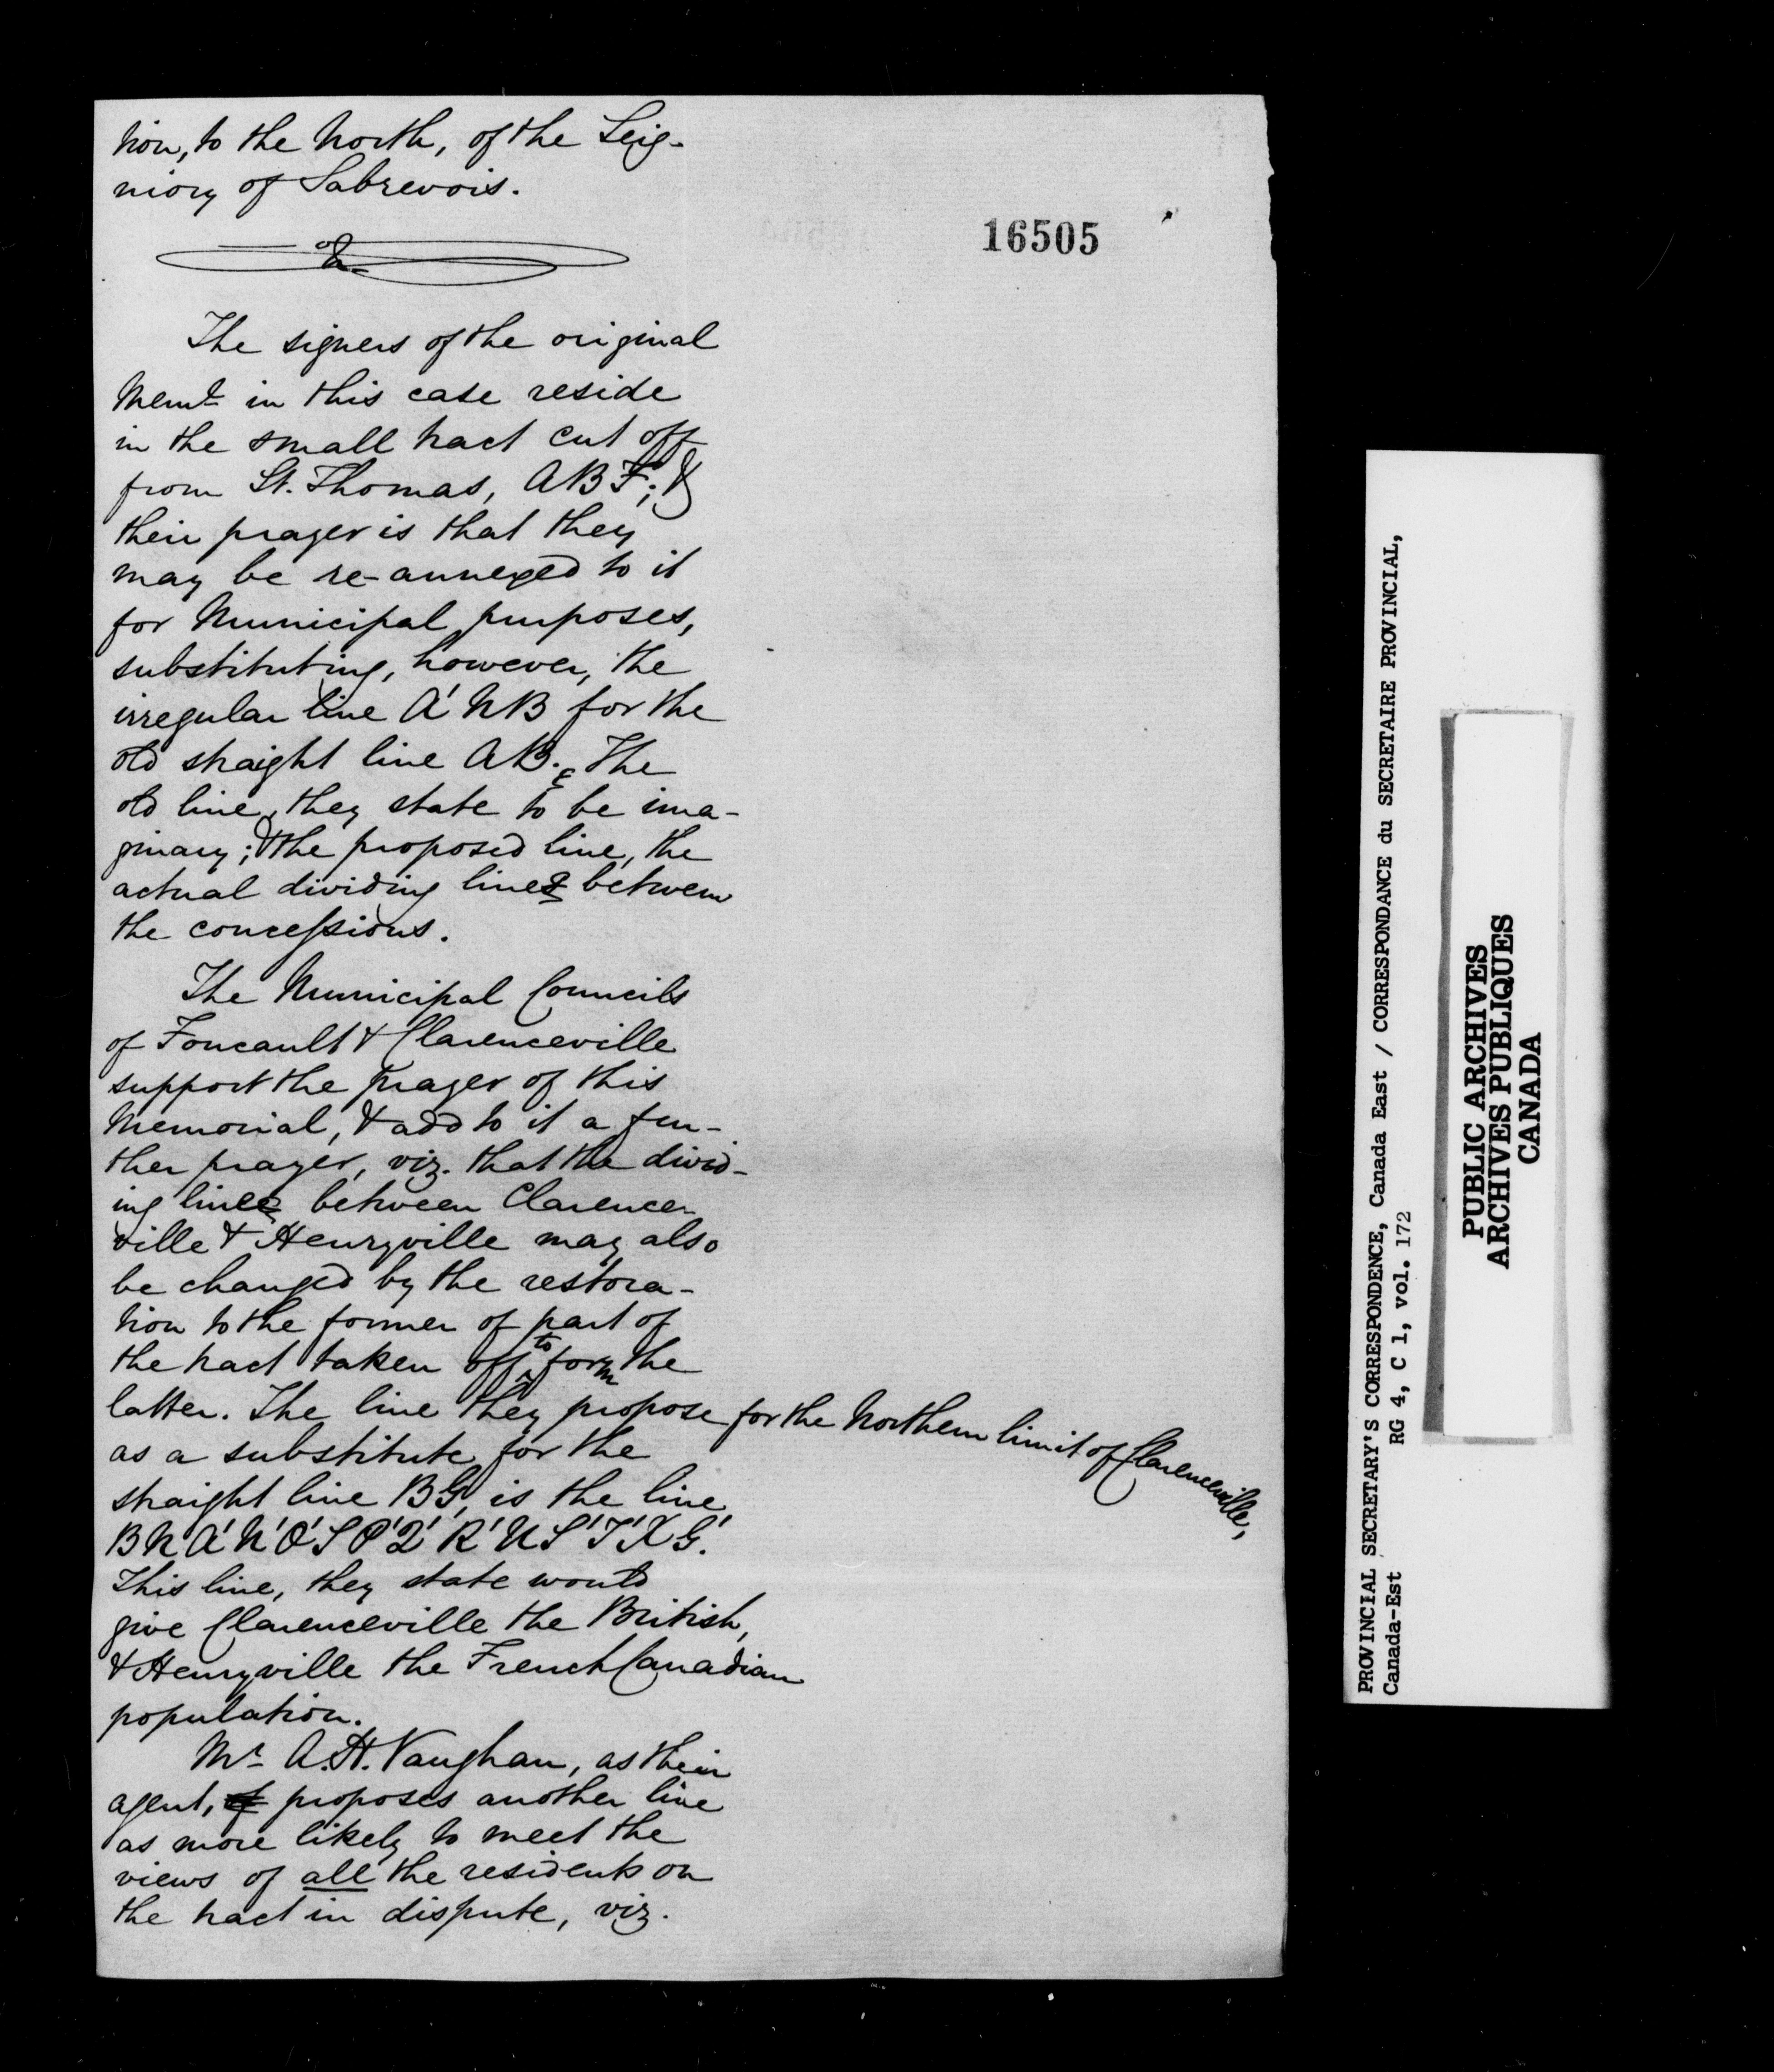 tion, to the North, of the Seig-
niory of Sabrevois.
16505
The signers of the original
Meml. in this case reside
in the small tract cut off
from St. Thomas, ABF; &
their prayer is that they
may be re-annexed to it
for Municipal purposes,
substituting, however, the
irregular line A'NB for the
old straight line AB. The
old line, they state to be ima-
ginary; & the proposed line, the
actual dividing lines between
the concessions.
The Municipal Councils
of Foucault & Clarenceville
support the prayer of this
Memorial, & add to it a fur-
ther prayer, viz. that the divid-
ing line between Clarence-
ville & Henryville may also
be changed by the restora-
tion to the former of part of
the tract taken off to form the
latter. The line they propose for the Northern limit of Clarenceville,
as a substitute for the
straight line BG, is the line
BNA'N'O'SP'Q'R'US'T'XG'.
This line, they state would
give Clarenceville the British,
& Henryville the French Canadian
population.
Mr. A.H. Vaughan, as their
agent, proposes another line
as more likely to meet the
views of all the residents on
the tract in dispute, viz.
PROVINCIAL SECRETARY'S CORRESPONDENCE, Canada East / CORRESPONDANCE du SECRETAIRE PROVINCIAL,
Canada-Est RG 4, C 1, vol. 172
PUBLIC ARCHIVES
ARCHIVES PUBLIQUES
CANADA